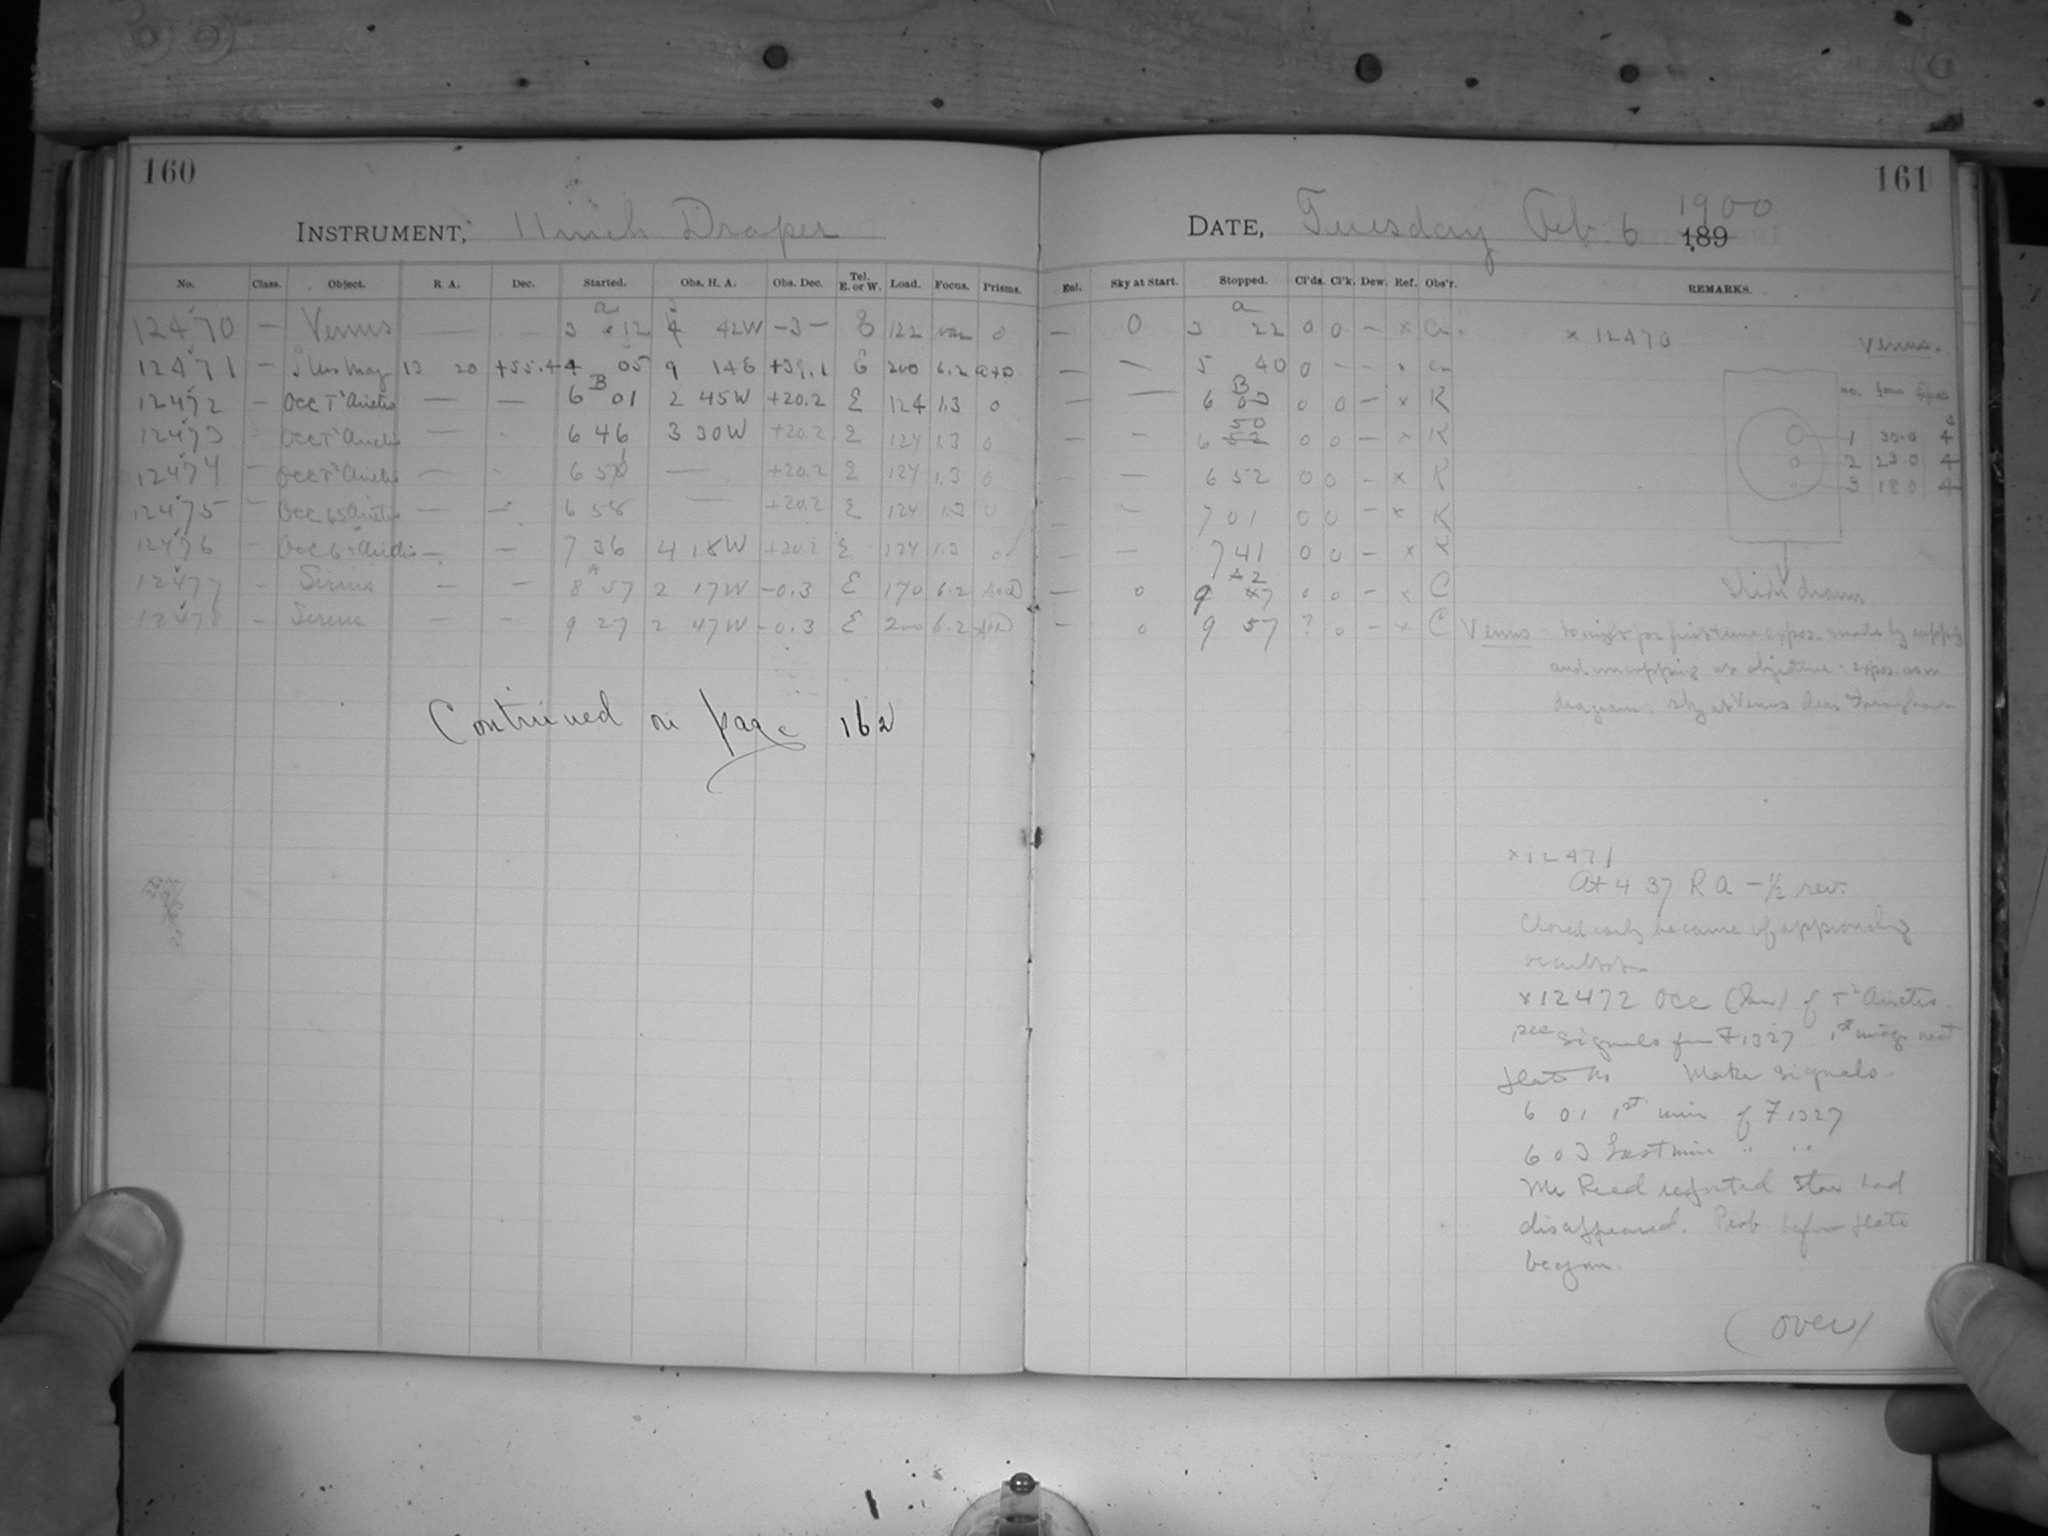 160
INSTRUMENT, 11 inch Draper
No. Class. Object. R. A. Dec. Started. Obs. H. A. Obs. Dec. Tel. E. or W. Load. Focus. Prisms.
a
12470 — Venus — — 3 12 4 42W -3- E 122 var 0
12471 — Urs Maj 13 20 +55.4 4 05 9 14E +39.1 E 200 6.2 A+D
B
12472 — Occ T² Arietis — — 6 01 2 45W +20.2 E 124 1.3 0
12473 Occ T² Arietis — - 6 46 3 30W +20.2 E 124 1.3 0
12474 — Occ T² Arietis — - 6 — +20.2 E 124 1.3 0
12475 — Occ 65 Arietis — — 6 58 — +20.2 E 124 1.3 0
12476 — Occ 65 Arietis — — 7 36 4 18W +20.2 E 124 1.3 0
A
12477 - Sirius — — 8 57 2 17W -0.3 E 170 6.2 A+D
12478 - Sirius — — 9 27 2 47W -0.3 E 200 6.2 A+D
Continued on page 162
161
DATE, Tuesday Feb. 6 1900
189
Enl. Sky at Start. Stopped. Cl'ds. Cl'k. Dew. Ref. Obs'r. REMARKS.
a
— 0 3 22 0 0 — x Cn
— — 5 40 0 - - x Cn
B
— — 6 03 0 0 — x K
50
— — 6 52 0 0 — x K
— — 6 52 0 0 — x K
— — 7 01 0 0 — x K
— — 7 41 0 0 — x K
A 2
— 0 9 0 0 — x C
— 0 9 57 ? 0 — x C
x 12470 Venus.
no.
1 30.0 4
2 23.0 4
3 18.0 4
Slide drawn
Venus tonight for first time expos. made by capping
and uncapping at objective: expos. as in
diagram: sky at Venus clear
x12471
At 4 37 R A -½ rev.
Closed early because of approaching
occultation
x12472 Occ of T² Arietis
signals 1st image next
Make signals.
6 01 1st min of
6 03 Last min " "
Mr Reed reported star had
disappeared. Prob. before plate
began.
(over)